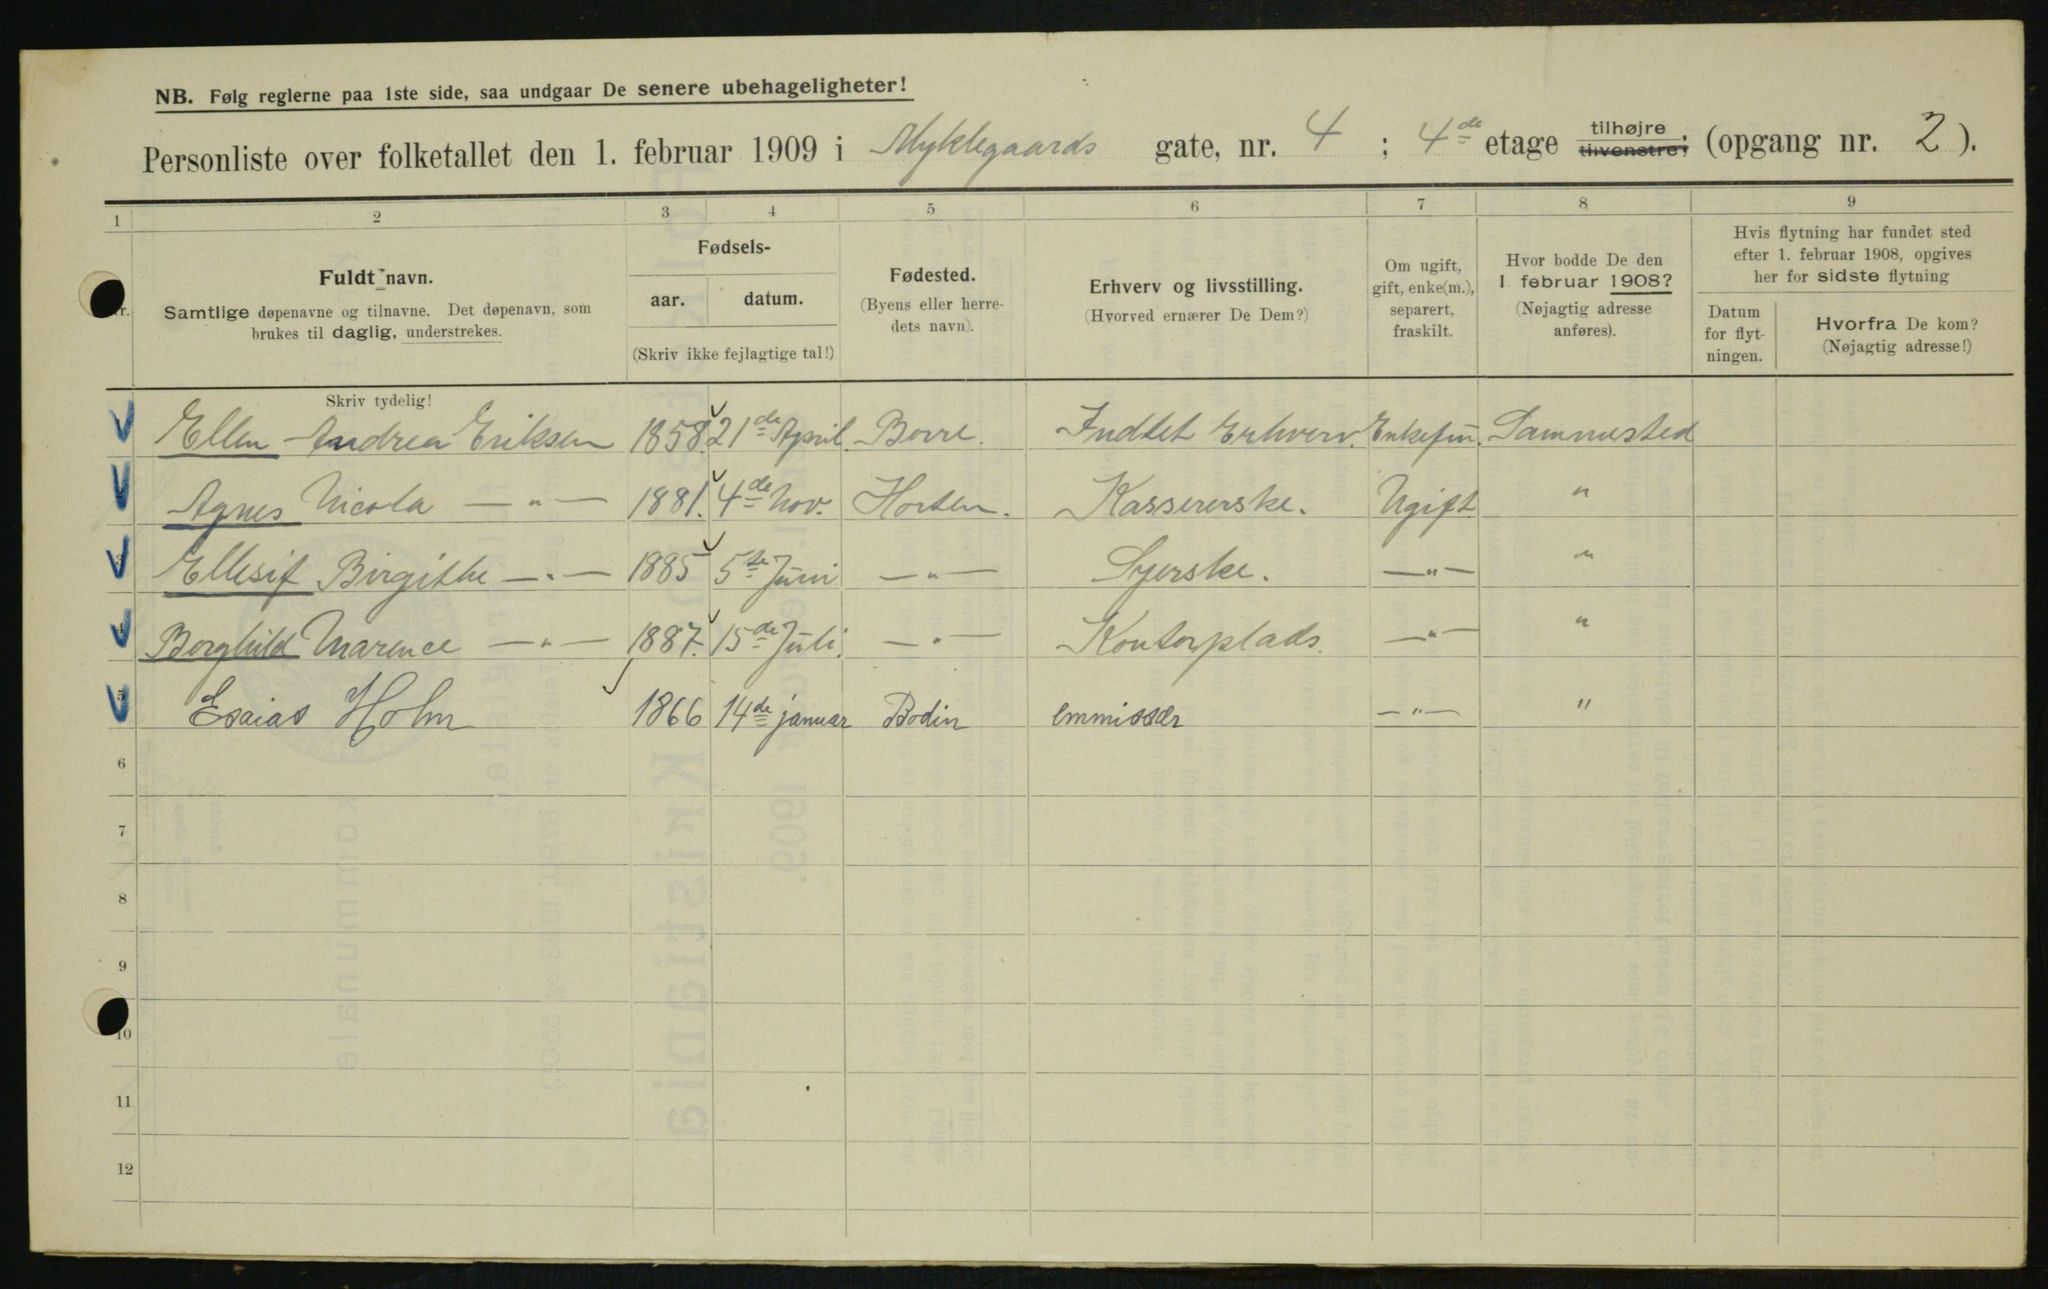 NB. Følg reglerne paa 1ste side, saa undgaar De senere ubehageligheter!
Personliste over folketallet den 1. februar 1909 i Myklegaards gate, nr. 4 ; 4de etage tilhøjre tilvenstre; (opgang nr. 2 ).
1 2 3 4 5 6 7 8 9
Nr.
Fuldt navn.
Samtlige døpenavne og tilnavne. Det døpenavn, som
brukes til daglig, understrekes.
Skriv tydelig!
Fødsels-
aar. datum.
(Skriv ikke fejlagtige tal!)
Fødested.
(Byens eller herre-
dets navn).
Erhverv og livsstilling.
(Hvorved ernærer De Dem?)
Om ugift,
gift, enke(m.),
separert,
fraskilt.
Hvor bodde De den
1. februar 1908?
(Nøjagtig adresse
anføres).
Hvis flytning har fundet sted
efter 1. februar 1908, opgives
her for sidste flytning
Datum
for flyt-
ningen.
Hvorfra De kom?
(Nøjagtig adresse!)
Ellen Andrea Eriksen 1858. 21de April. Borre. Indtet Erhverv. Enkefru. Sammested
Agnes Nicola — " — 1881. 4de Nov. Horten. Kassererske. Ugift "
Ellesif Birgithe — " — 1885 5te Juni — " — Syerske. — " — "
Borghild Marence — " — 1887. 15de Juli. — " — Kontorplads. — " — "
5 Esaias Holm 1866 14de januar Bodin emmissær — " — "
6
7
8
9
10
11
12